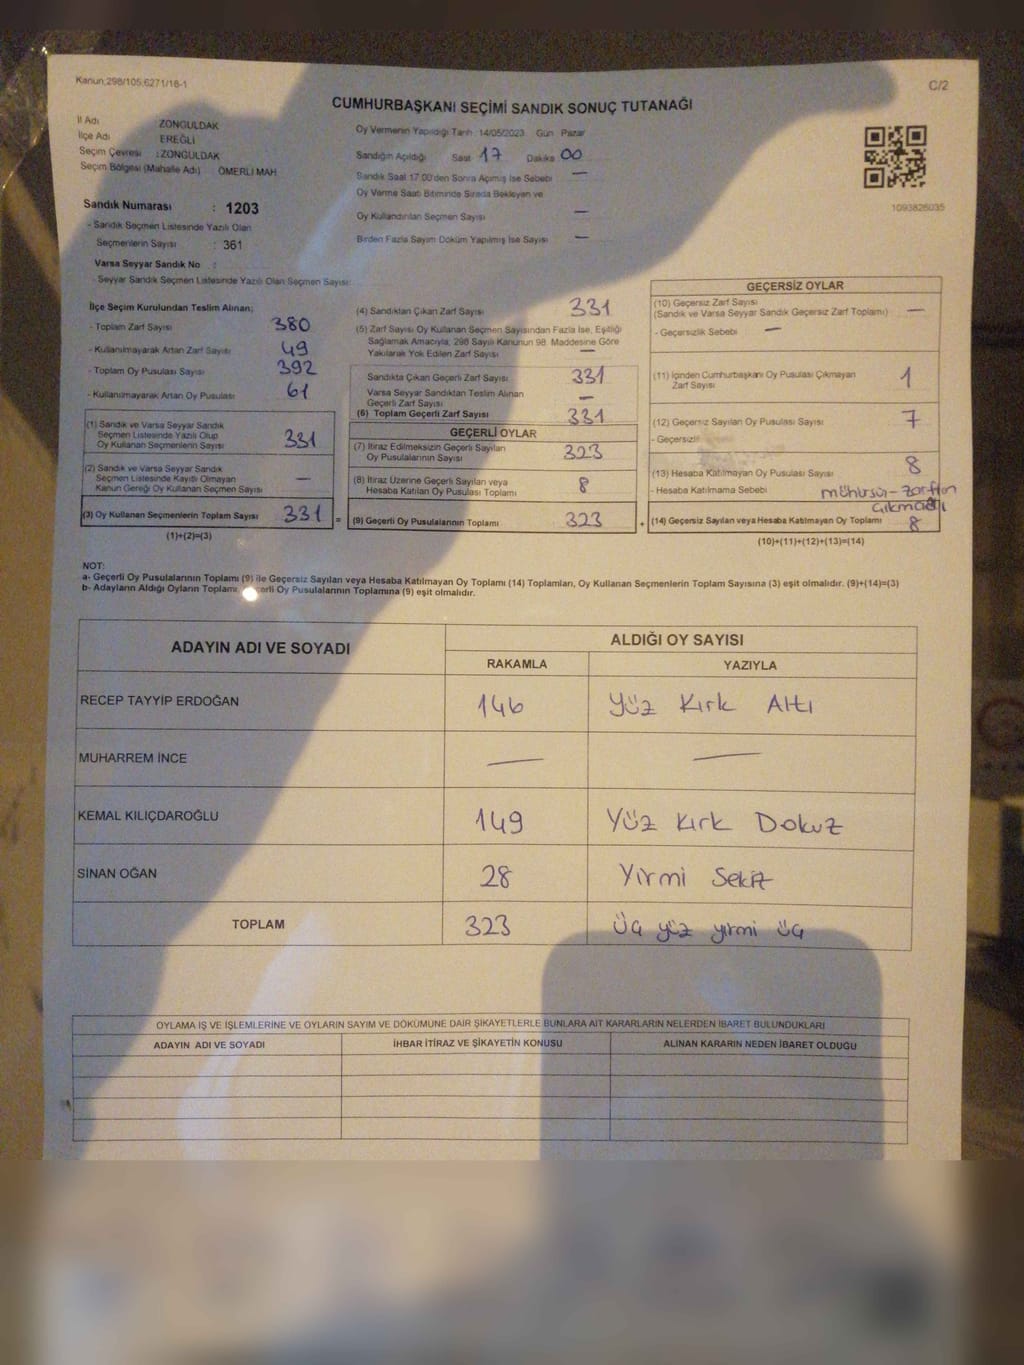 Kanun.298/105.6271/18-1
C/2
CUMHURBAŞKANI SEÇİMİ SANDIK SONUÇ TUTANAĞI
İl Adı ZONGULDAK
İlçe Adı EREĞLİ
Seçim Çevresi :ZONGULDAK
Seçim Bölgesi (Mahalle Adı) ÖMERLİ MAH
Oy Vermenin Yapıldığı Tarih 14/05/2023 Gün Pazar
Sandığın Açıldığı Saat 17 Dakika 00
Sandık Saat 17.00'den Sonra Açımış İse Sebebi —
Oy Verme Saati Bitiminde Sırada Bekleyen ve
Oy Kullandırılan Seçmen Sayısı —
Birden Fazla Sayım Döküm Yapılmış İse Sayısı —
1093826035
Sandık Numarası : 1203
- Sandık Seçmen Listesinde Yazılı Olan
Seçmenlerin Sayısı : 361
Varsa Seyyar Sandık No :
- Seyyar Sandık Seçmen Listesinde Yazılı Olan Seçmen Sayısı:
İlçe Seçim Kurulundan Teslim Alınan;
- Toplam Zarf Sayısı 380
- Kullanılmayarak Artan Zarf Sayısı 49
- Toplam Oy Pusulası Sayısı 392
- Kullanılmayarak Artan Oy Pusulası 61
(1) Sandık ve Varsa Seyyar Sandık
Seçmen Listesinde Yazılı Olup
Oy Kullanan Seçmenlerin Sayısı 331
(2) Sandık ve Varsa Seyyar Sandık
Seçmen Listesinde Kaydı Olmayan
Kanun Gereği Oy Kullanan Seçmen Sayısı —
(3) Oy Kullanan Seçmenlerin Toplam Sayısı 331 =
(1)+(2)=(3)
(4) Sandıktan Çıkan Zarf Sayısı 331
(5) Zarf Sayısı Oy Kullanan Seçmen Sayısından Fazla İse, Eşitliği
Sağlamak Amacıyla, 298 Sayılı Kanunun 98. Maddesine Göre
Yakılarak Yok Edilen Zarf Sayısı —
Sandıkta Çıkan Geçerli Zarf Sayısı 331
Varsa Seyyar Sandıktan Teslim Alınan
Geçerli Zarf Sayısı —
(6) Toplam Geçerli Zarf Sayısı 331
GEÇERLİ OYLAR
(7) İtiraz Edilmeksizin Geçerli Sayılan
Oy Pusulalarının Sayısı 323
(8) İtiraz Üzerine Geçerli Sayılan veya
Hesaba Katılan Oy Pusulası Toplamı 8
(9) Geçerli Oy Pusulalarının Toplamı 323 +
GEÇERSİZ OYLAR
(10) Geçersiz Zarf Sayısı
(Sandık ve Varsa Seyyar Sandık Geçersiz Zarf Toplamı) —
- Geçersizlik Sebebi —
(11) İçinden Cumhurbaşkanı Oy Pusulası Çıkmayan
Zarf Sayısı 1
(12) Geçersiz Sayılan Oy Pusulası Sayısı 7
- Geçersizli
(13) Hesaba Katılmayan Oy Pusulası Sayısı 8
- Hesaba Katılmama Sebebi mühürsür-zarftan
çıkmadı
(14) Geçersiz Sayılan veya Hesaba Katılmayan Oy Toplamı 8
(10)+(11)+(12)+(13)=(14)
NOT:
a- Geçerli Oy Pusulalarının Toplamı (9) ile Geçersiz Sayılan veya Hesaba Katılmayan Oy Toplamı (14) Toplamları, Oy Kullanan Seçmenlerin Toplam Sayısına (3) eşit olmalıdır. (9)+(14)=(3)
b- Adayların Aldığı Oyların Toplamı, erli Oy Pusulalarının Toplamına (9) eşit olmalıdır.
ADAYIN ADI VE SOYADI
ALDIĞI OY SAYISI
RAKAMLA YAZIYLA
RECEP TAYYİP ERDOĞAN 146 Yüz Kırk Altı
MUHARREM İNCE — —
KEMAL KILIÇDAROĞLU 149 Yüz Kırk Dokuz
SİNAN OĞAN 28 Yirmi Sekiz
TOPLAM 323 Üç yüz yirmi üç
OYLAMA İŞ VE İŞLEMLERİNE VE OYLARIN SAYIM VE DÖKÜMÜNE DAİR ŞİKAYETLERLE BUNLARA AİT KARARLARIN NELERDEN İBARET BULUNDUKLARI
ADAYIN ADI VE SOYADI İHBAR İTİRAZ VE ŞİKAYETİN KONUSU ALINAN KARARIN NEDEN İBARET OLDUĞU